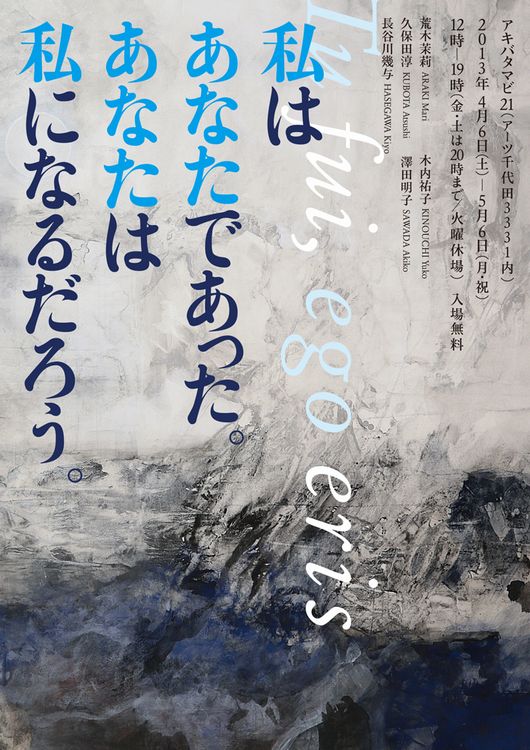 アキバタマビ21(アーツ千代田3331内)
2013年4月6日(土)—5月6日(月・祝)
12時—19時(金・土は20時まで/火曜休場) 入場無料
荒木茉莉 ARAKI Mari
木内祐子 KINOUCHI Yuko
久保田淳 KUBOTA Atsushi
澤田明子 SAWADA Akiko
長谷川幾与 HASEGAWA Kiyo
Tu fui, ego eris
私は
あなたであった。
あなたは
私になるだろう。